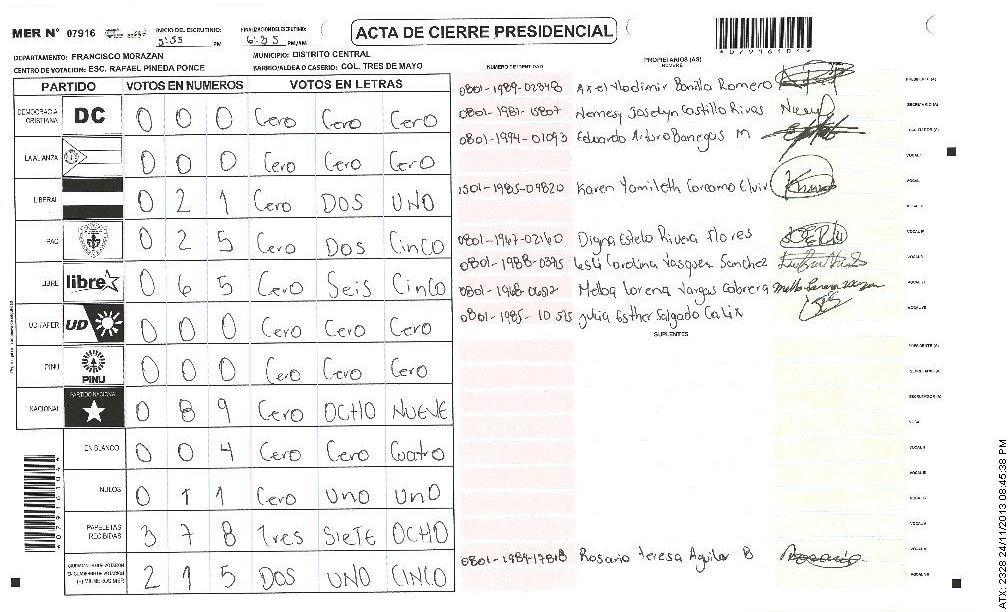 MER Nº 07916
INICIO DEL ESCRUTINIO:
5:55 PM
FINALIZACION DEL ESCRUTINIO:
6:35 PM/AM
ACTA DE CIERRE PRESIDENCIAL
DEPARTAMENTO: FRANCISCO MORAZAN
MUNICIPIO: DISTRITO CENTRAL
CENTRO DE VOTACION: ESC. RAFAEL PINEDA PONCE
BARRIO/ALDEA O CASERIO: COL. TRES DE MAYO
PARTIDO VOTOS EN NUMEROS VOTOS EN LETRAS
DEMOCRACIA CRISTIANA DC 0 0 0 Cero Cero Cero
LA ALIANZA 0 0 0 Cero Cero Cero
LIBERAL 0 2 1 Cero DOS UNO
PAC 0 2 5 Cero Dos Cinco
LIBRE libre 0 6 5 Cero Seis Cinco
UD-FAPER UD 0 0 0 Cero Cero Cero
PINU PINU 0 0 0 Cero Cero Cero
NACIONAL PARTIDO NACIONAL 0 8 9 Cero OCHO NUEVE
EN BLANCO 0 0 4 Cero Cero Cuatro
NULOS 0 1 1 Cero UNO UNO
PAPELETAS RECIBIDAS 3 7 8 Tres SIETE OCHO
2 1 5 DOS UNO CINCO
NUMERO DE IDENTIDAD
PROPIETARIOS (AS)
NOMBRE
0801-1989-02848 Axel Vladimir Bonilla Romero
0801-1981-15807 Nemesy Joselyn Castillo Rivas
0801-1994-01093 Eduardo Arturo Banegas M
1501-1985-04820 Karen Yamileth Carcamo Elvir
0801-1967-02160 Digna Estela Rivera Flores
0801-1988-0395 Lesli Carolina Vasquez Sanchez
0801-1968-0692 Melba Lorena Vargas Cabrera
0801-1985-10515 Julia Esther Salgado Calix
SUPLENTES
0801-1984-17818 Rosario Teresa Aguilar B
PRESIDENTE (A)
SECRETARIO (A)
ESCRUTADOR (A)
VOCAL I
ATX: 2328 24/11/2013 08:45:38 PM